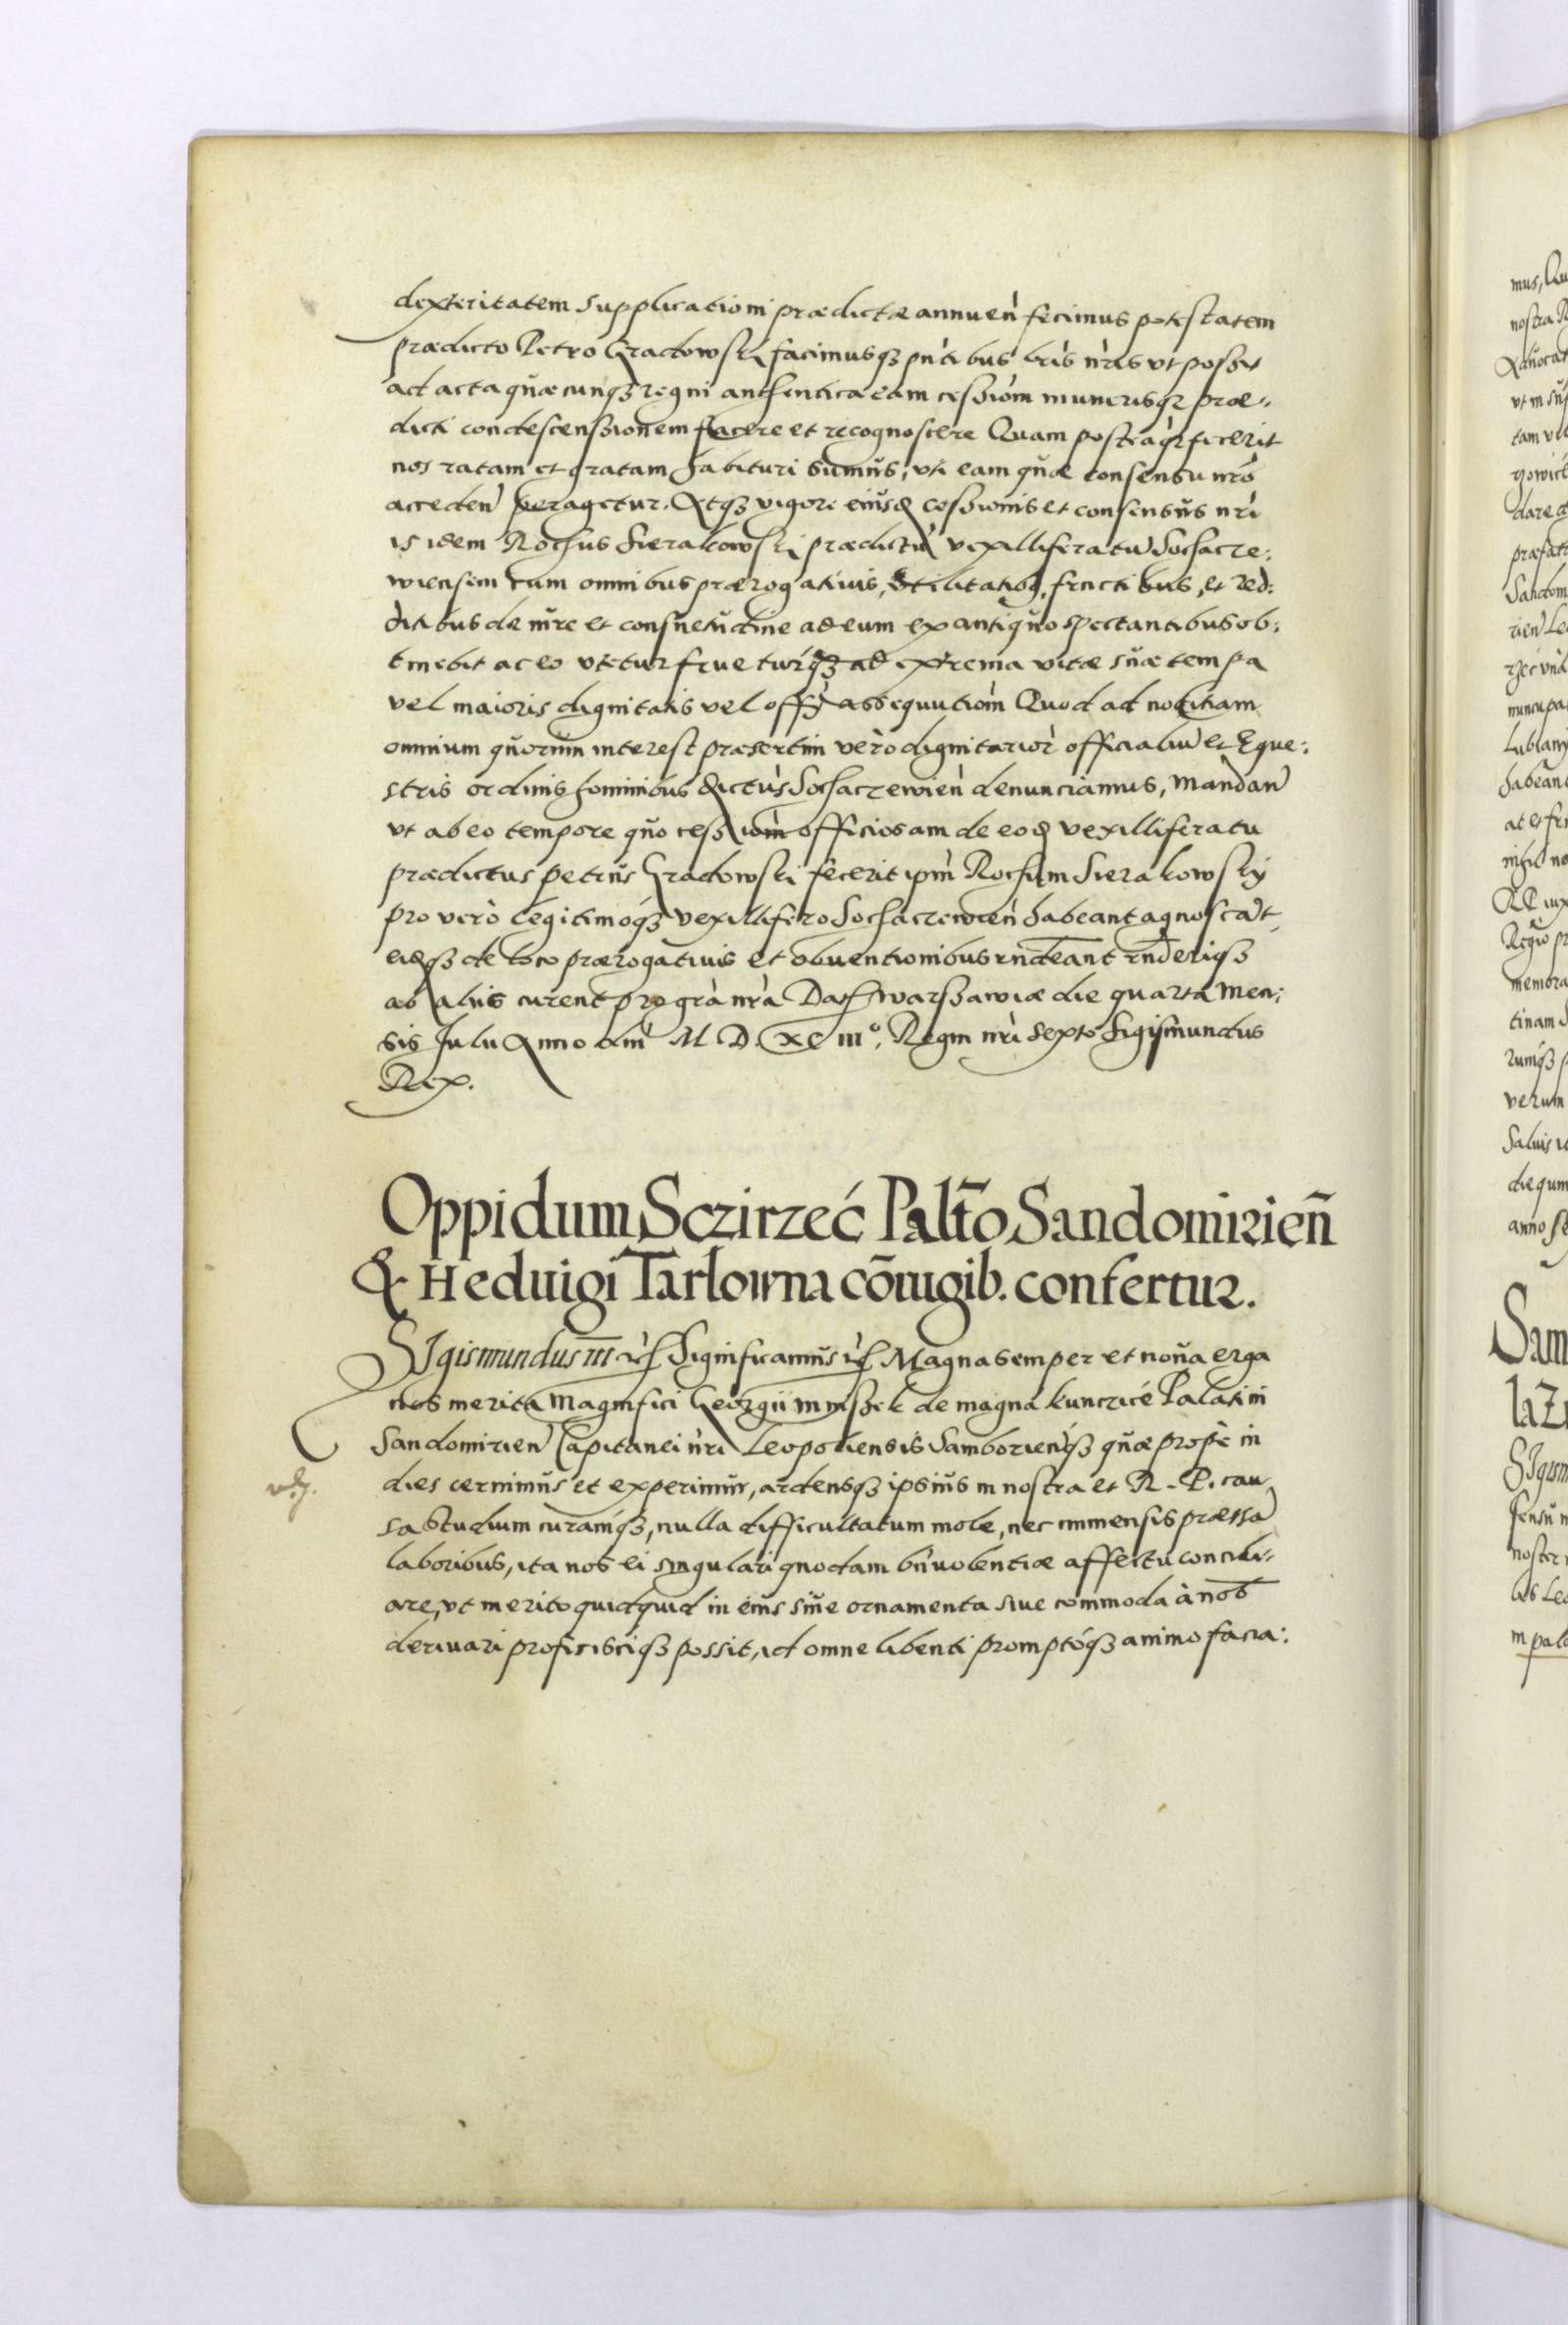 dexteritatem supplicationi prædictæ annuen̄ fecimus potestatem
prædicto Petro Gradowski facimusqȝ pn̄tibus lr̄is nr̄is vt possit
ad acta quæcunqȝ regni authentica eam cessiom̄ munerisqȝ præ:
dicti condescensionem facere et recognoscere Quam posteaqȝ fecerit
nos ratam et gratam habituri sumus, vti eam quæ consensu nr̄o
acceden̄ peragetur. Atqȝ vigore eiusd̄ cessionis et consensus nr̄i
is idem Rochus Sierakowski prædictū vexilliferatū Sochacze:
wiensem cum omnibus prærogatiuis, vtilitatibȝ, fructibus, et red:
ditibus de iure et consuetudine ad eum ex antiquo spectantibus ob:
tinebit ac eo vtetur frueturqȝ ad extrema vitæ suæ tempa
vel maioris dignitatis vel offȳ assequutiom̄ Quod ad notitiam
omnium quorum interest præsertim vero dignitarior̄ officialiū et Eque:
stris ordinis hominibus dictus̄ Sochaczewien̄ denunciamus, Mandan̄
vt ab eo tempore quo cessiom̄ officiosam de eod̄ vexilliferatu
prædictus petrus Gradowski fecerit ipm̄ Rochum Sierakowskÿ
pro vero legitimoqȝ vexillifero Sochaczewien̄ habeant agnoscāt,
eidqȝ de loco prærogatiuis et obuentionibus rn̄deant rn̄deriqȝ
ab aliis curent pro gr̄a nr̄a Dat Warssawiæ die quarta Men:
sis Julii Anno dn̄i M D. XC III°. Regni nr̄i sexto Sigismundus
Rex.
Oppidum Sczirzeć Palt̄o Sandomirien̄
& Heduigi Tarlowna cōiugib. confertur.
SIgismundus III etc Significamus etc Magna semper et noua erga
nos merita Magnifici Georgii mnissek de magna kunczicé Palatini
Sandomirien̄ Capitanei nr̄i Leopoliensis Samborien̄qȝ quæ prope in
dies cernimus et experimur, ardensqȝ ipsius in nostra et R. P. cau
sa studium curamqȝ, nulla difficultatum mole, nec immensis præssa
laboribus, ita nos ei singulari quodam bn̄uolentiæ affectu concili:
are, vt merito quidquid in eius siue ornamenta siue commoda à nob̄
deriuari proficisciqȝ possit, id omne libenti promptoqȝ animo facia: